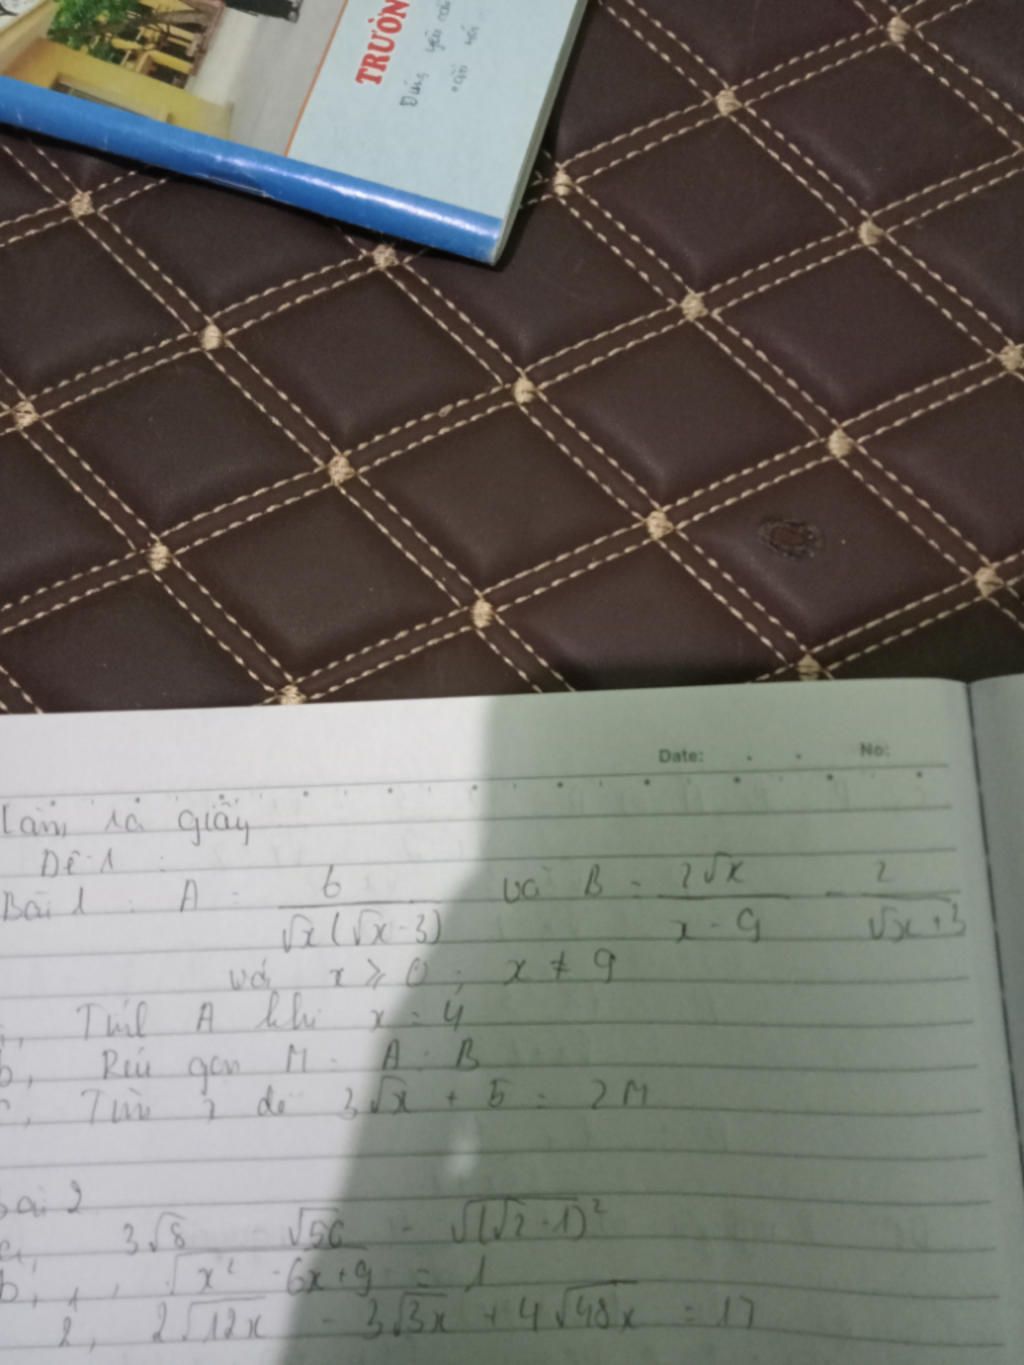 TRƯỜN
Date: No:
Làm ra giấy
Đề 1 :
Bài 1 : A = 6 / √x(√x - 3) và B = 2√x / x - 9 - 2 / √x + 3
với x ≥ 0 ; x ≠ 9
Tính A khi x = 4
b, Rút gọn M = A : B
c, Tìm x để 3√x + 5 = 2M
Bài 2
a, 3√8 - √50 - √(√2 - 1)²
b, 1, √x² - 6x + 9 = 1
2, 2√12x - 3√3x + 4√48x = 17